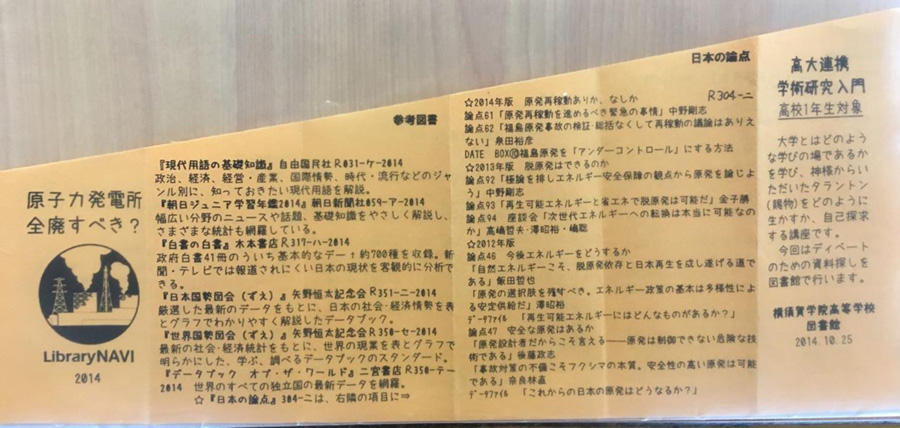 原子力発電所
全廃すべき?
LibraryNAVI
2014
参考図書
『現代用語の基礎知識』自由国民社R031-ケ-2014
政治、経済、経営・産業、国際情勢、時代・流行などのジャ
ンル別に、知っておきたい現代用語を解説。
『朝日ジュニア学習年鑑2014』朝日新聞社059-ア-2014
幅広い分野のニュースや話題、基礎知識をやさしく解説し、
さまざまな統計も網羅している。
『白書の白書』木本書店R317-ハ-2014
政府白書41冊のうち基本的なデータ約700種を収録。新
聞・テレビでは報道されにくい日本の現状を客観的に分析で
きる。
『日本国勢図会(ずえ)』矢野恒太記念会R351-ニ-2014
厳選した最新のデータをもとに、日本の社会・経済情勢を表
とグラフでわかりやすく解説したデータブック。
『世界国勢図会(ずえ)』矢野恒太記念会R350-セ-2014
最新の社会・経済統計をもとに、世界の現業を表とグラフで
明らかにした、学ぶ、調べるデータブックのスタンダード。
『データブック オブ・ザ・ワールド』二宮書店R350-テ-
2014 世界のすべての独立国の最新データを網羅。
☆『日本の論点』304-ニは、右隣の項目に⇒
日本の論点
R304-ニ
☆2014年版 原発再稼動ありか、なしか
論点61「原発再稼動を進めるべき緊急の事情」中野剛志
論点62「福島原発事故の検証・総括なくして再稼動の議論はありえ
ない」泉田裕彦
DATE BOX⑩福島原発を「アンダーコントロール」にする方法
☆2013年版 脱原発はできるのか
論点92「極論を排しエネルギー安全保障の観点から原発を論じよ
う」中野剛志
論点93「再生可能エネルギーと省エネで脱原発は可能だ」金子勝
論点94 座談会「次世代エネルギーへの転換は本当に可能なの
か」高嶋哲夫・澤昭裕・嶋聡
☆2012年版
論点46 今後エネルギーをどうするか
「自然エネルギーこそ、脱原発依存と日本再生を成し遂げる道で
ある」飯田哲也
「原発の選択肢を残すべき。エネルギー政策の基本は多様性によ
る安定供給だ」澤昭裕
データファイル 「再生可能エネルギーにはどんなものがあるか?」
論点47 安全な原発はあるか
「原発設計者だからこそ言える――原発は制御できない危険な技
術である」後藤政志
「事故対策の不備こそフクシマの本質。安全性の高い原発は可能
である」奈良林直
データファイル 「これからの日本の原発はどうなるか?」
高大連携
学術研究入門
高校1年生対象
大学とはどのよう
な学びの場であるか
を学び、神様からい
ただいたタラントン
(賜物)をどのように
生かすか、自己探求
する講座です。
今回はディベート
のための資料探しを
図書館で行います。
横須賀学院高等学校
図書館
2014.10.25